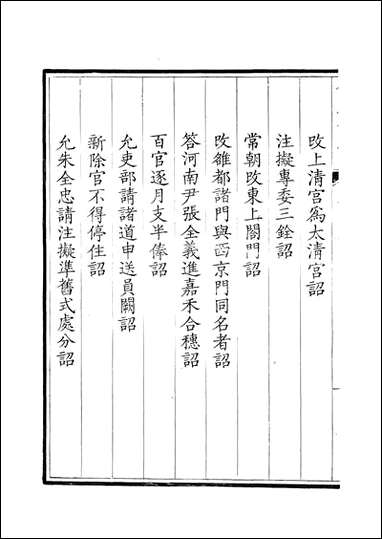 改上清宮為太清宮詔
注擬專委三銓詔
常朝改東上閤門詔
改雒都諸門與西京門同名者詔
答河南尹張全義進嘉禾合穗詔
百官逐月支半俸詔
允吏部請諸道申送員闕詔
新除官不得停住詔
允朱全忠請注擬準舊式處分詔